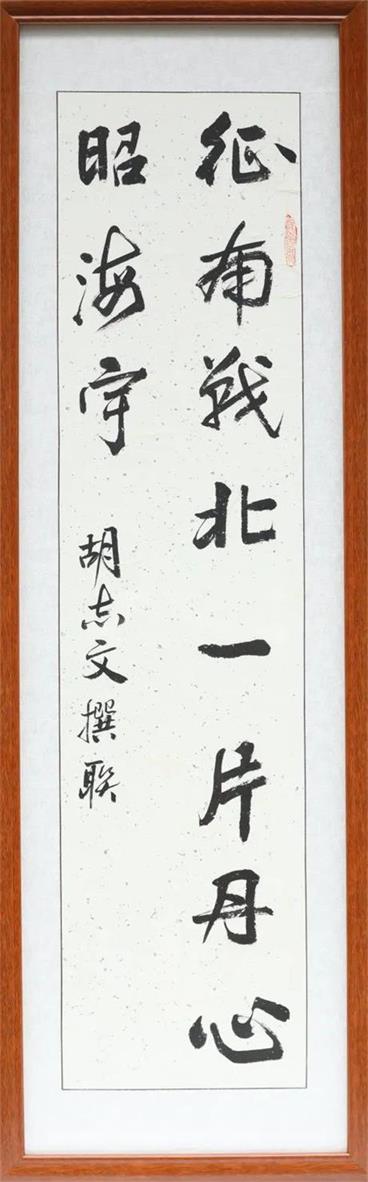 征南战北一片丹心
昭海宇
胡志文撰联